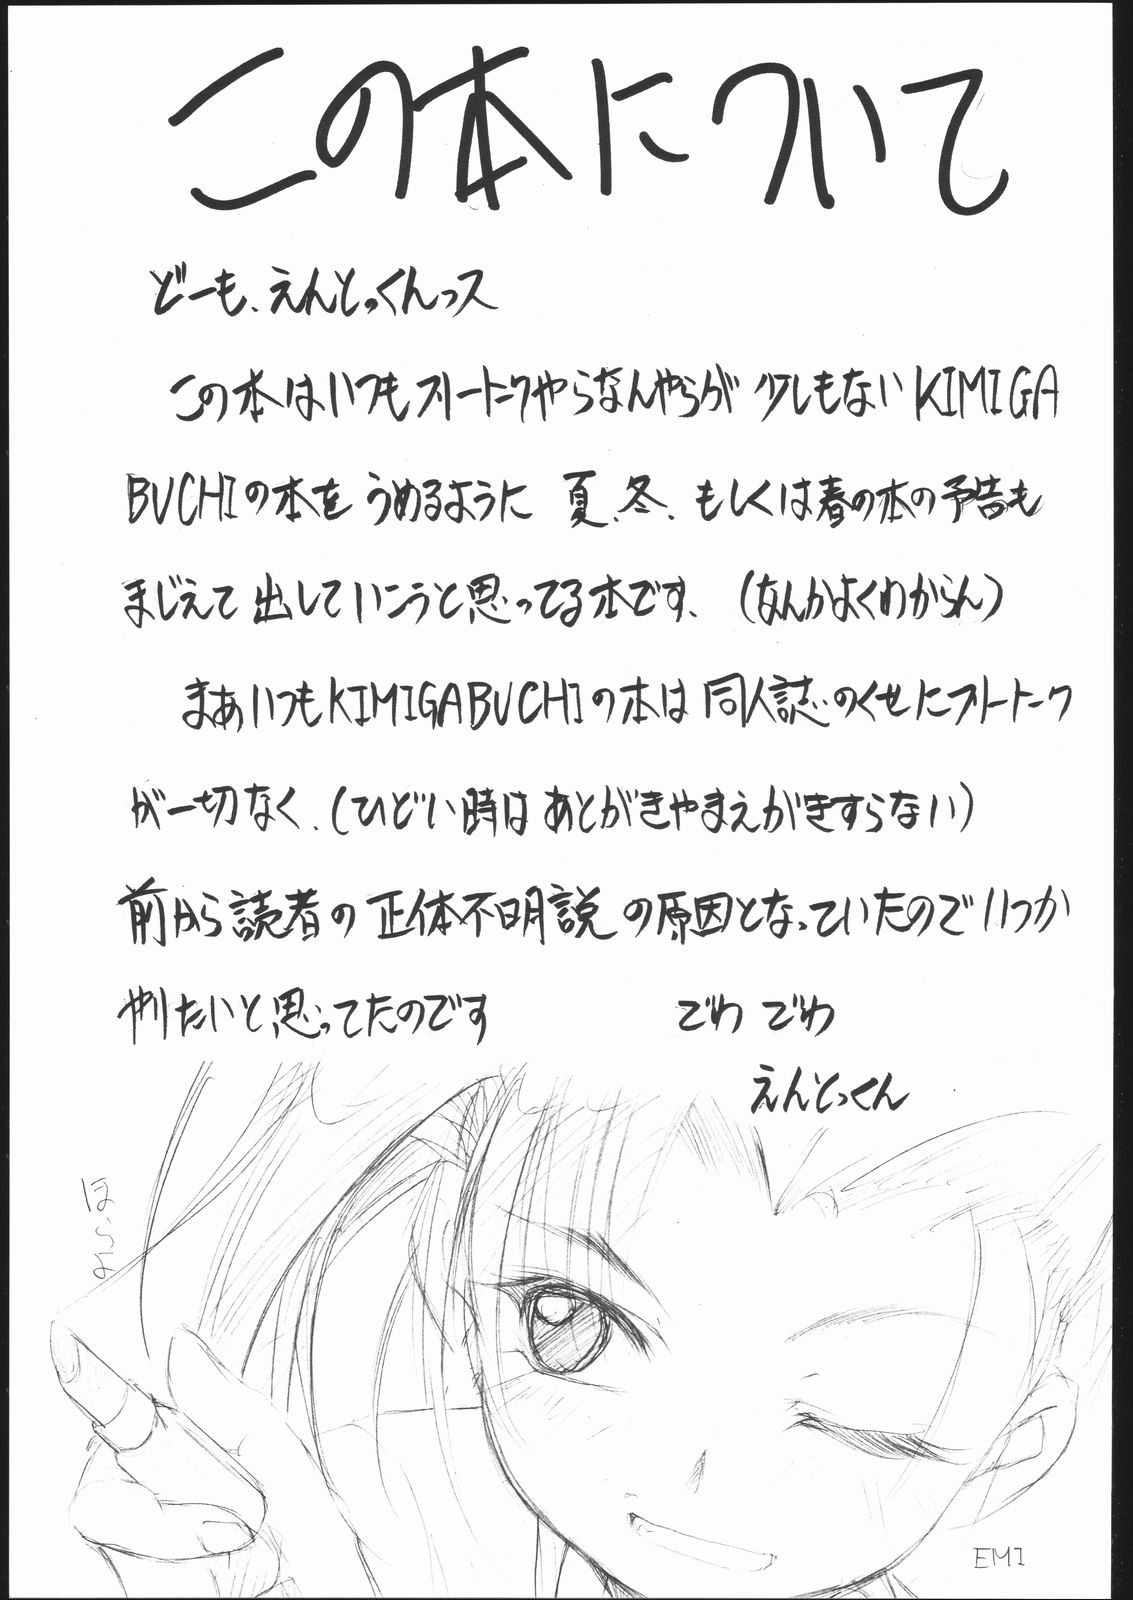 この本について
どーも、えんとっくんっス
この本はいつもフリートークやらなんやらが少しもないKIMIGA
BUCHIの本をうめるように 夏、冬、もしくは春の本の予告も
まじえて出していこうと思ってる本です、(なんかよくわからん)
まあいつもKIMIGABUCHIの本は同人誌のくせにフリートーク
が一切なく、(ひどい時はあとがきやまえがきすらない)
前から読者の正体不明説の原因となっていたのでいつか
やりたいと思ってたのです でわでわ
えんとっくん
EMI